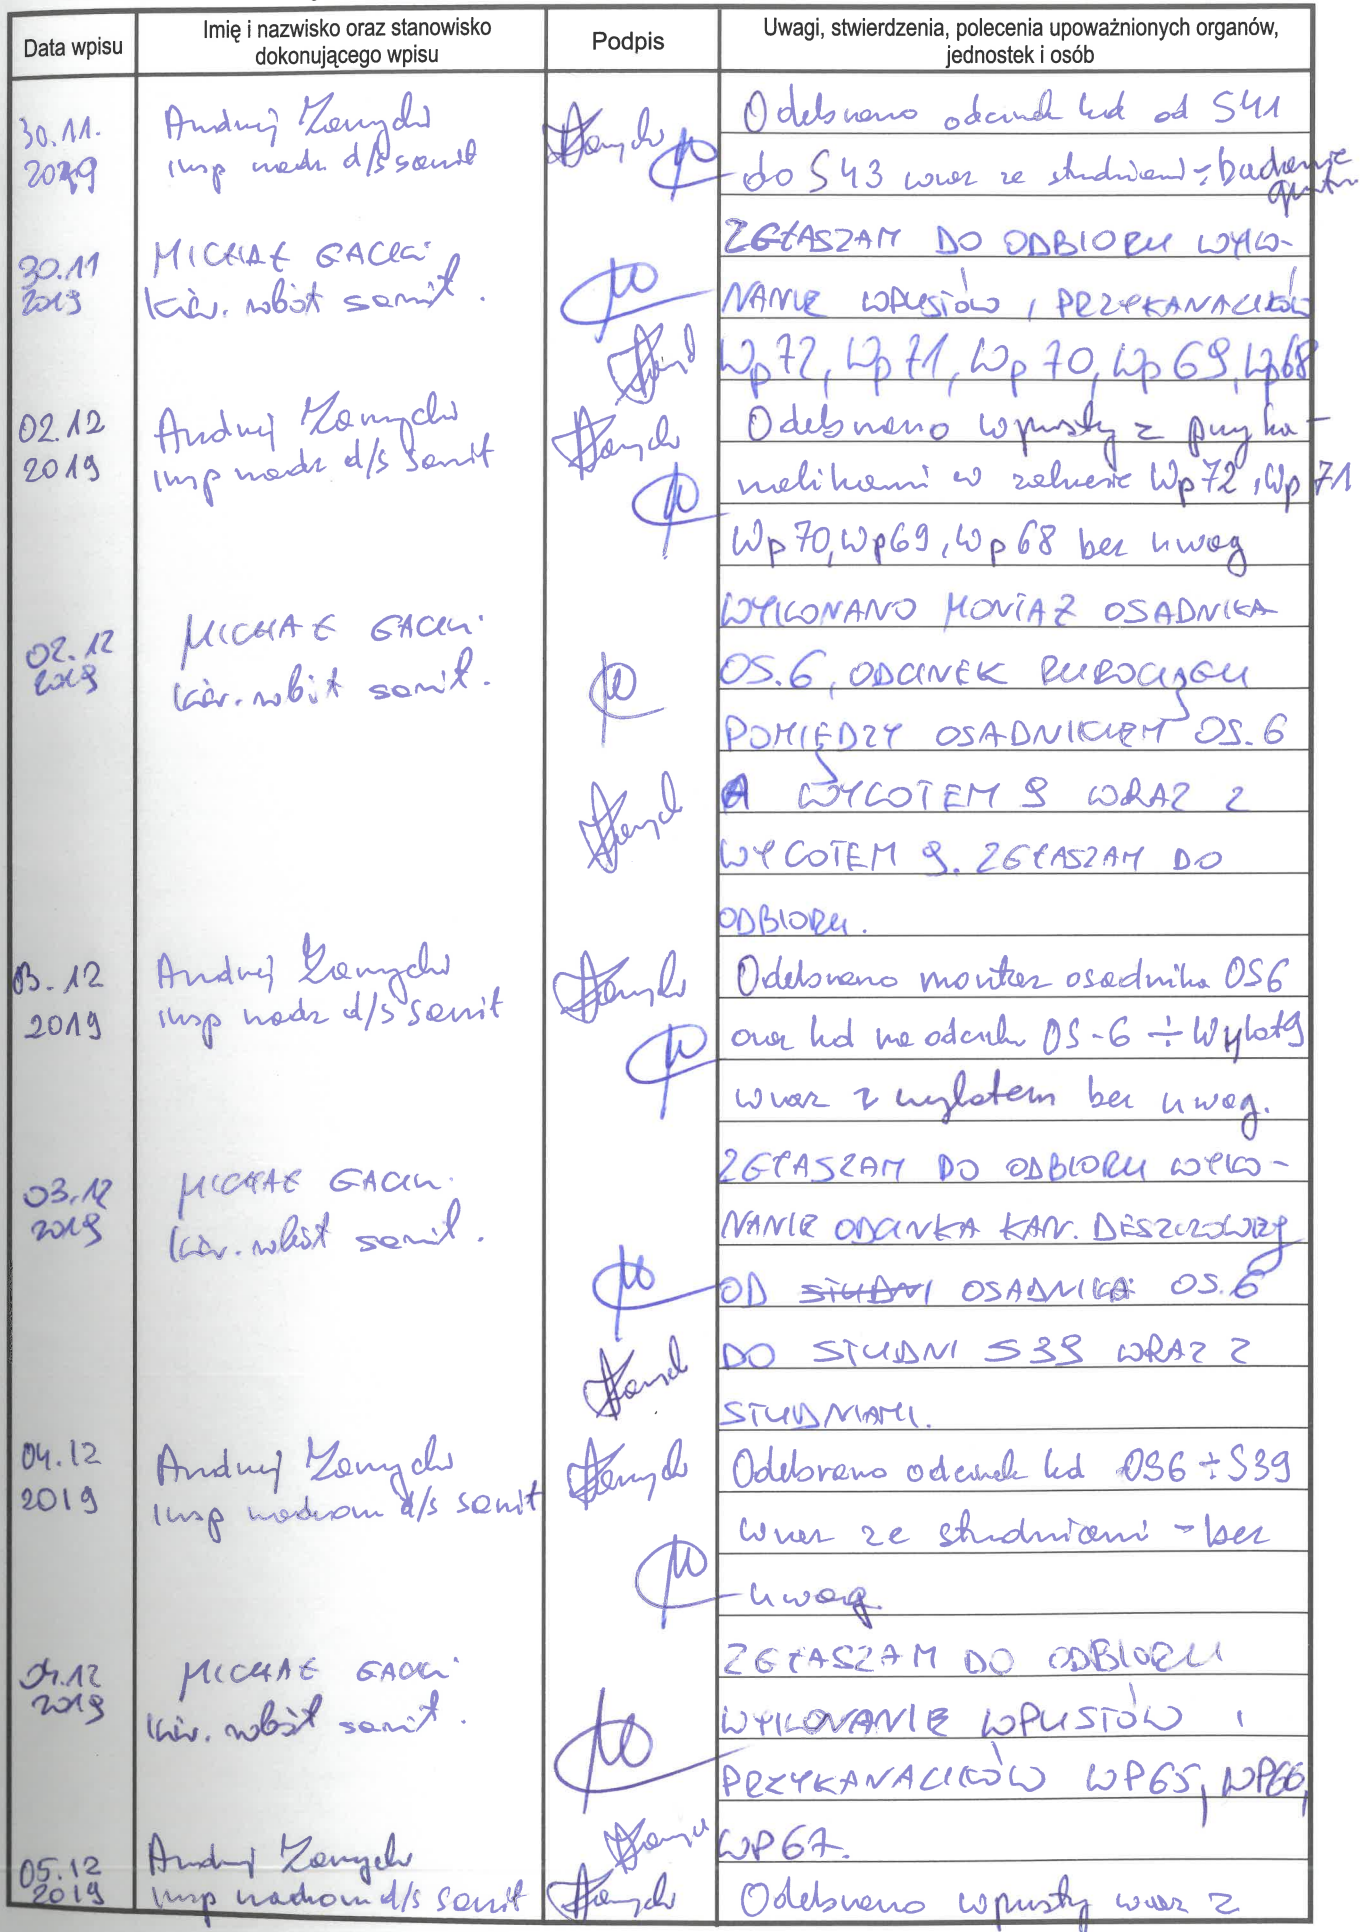 Data wpisu
Imię i nazwisko oraz stanowisko
dokonującego wpisu
Podpis
Uwagi, stwierdzenia, polecenia upoważnionych organów,
jednostek i osób
30.11.
2019
Andrzej
insp nadz d/s sanit
Odebrano odcinek kd od S41
do S43 wraz ze studniami - badanie
gruntu
30.11
2019
MICHAŁ GACKI
kier. robót sanit.
ZGŁASZAM DO ODBIORU WYKO-
NANIE WPUSTÓW I PRZYKANALIKÓW
Wp72, Wp71, Wp70, Wp69, Wp68
02.12
2019
Andrzej
insp nadz d/s sanit
Odebrano wpusty z przyka-
nalikami w zakresie Wp72, Wp71
Wp70, Wp69, Wp68 bez uwag
02.12
2019
MICHAŁ GACKI
kier. robót sanit.
WYKONANO MONTAŻ OSADNIKA
OS.6, ODCINEK RUROCIĄGU
POMIĘDZY OSADNIKIEM OS.6
A WYLOTEM 9 WRAZ Z
WYLOTEM 9. ZGŁASZAM DO
ODBIORU.
03.12
2019
Andrzej
insp nadz d/s sanit
Odebrano montaż osadnika OS6
oraz kd na odcinku OS-6 ÷ Wylot9
wraz z wylotem bez uwag.
03.12
2019
MICHAŁ GACKI
kier. robót sanit.
ZGŁASZAM DO ODBIORU WYKO-
NANIE ODCINKA KAN. DESZCZOWEJ
OD STUDNI OSADNIKA OS.6
DO STUDNI S39 WRAZ Z
STUDNIAMI.
04.12
2019
Andrzej
insp nadzoru d/s sanit
Odebrano odcinek kd OS6 ÷ S39
wraz ze studniami - bez
uwag.
04.12
2019
MICHAŁ GACKI
kier. robót sanit.
ZGŁASZAM DO ODBIORU
WYKONANIE WPUSTÓW I
PRZYKANALIKÓW WP65, WP66,
WP67.
05.12
2019
Andrzej
insp nadzoru d/s sanit
Odebrano wpusty wraz z